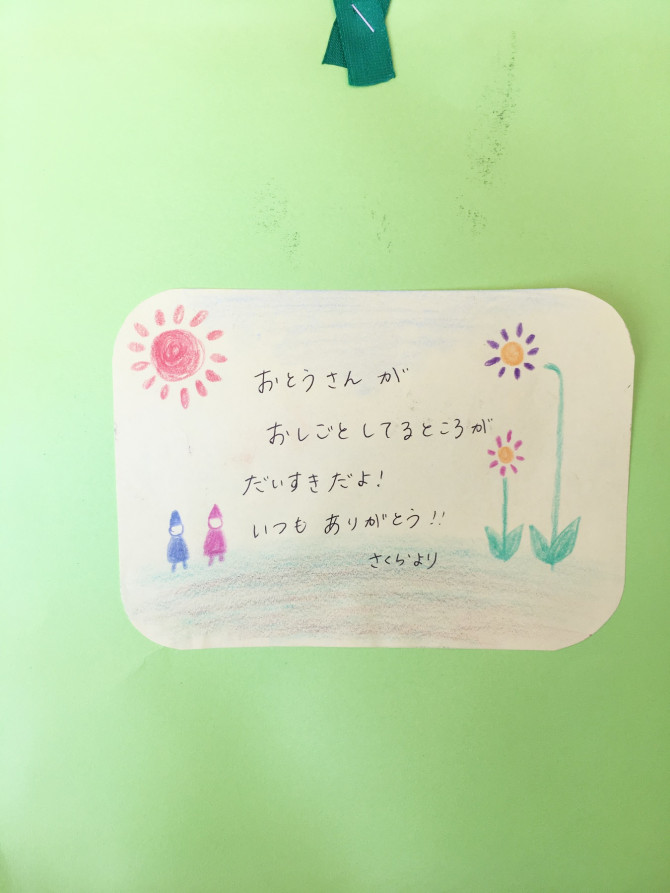 おとうさん が
おしごと してるところが
だいすきだよ!
いつも ありがとう!!
さくらより